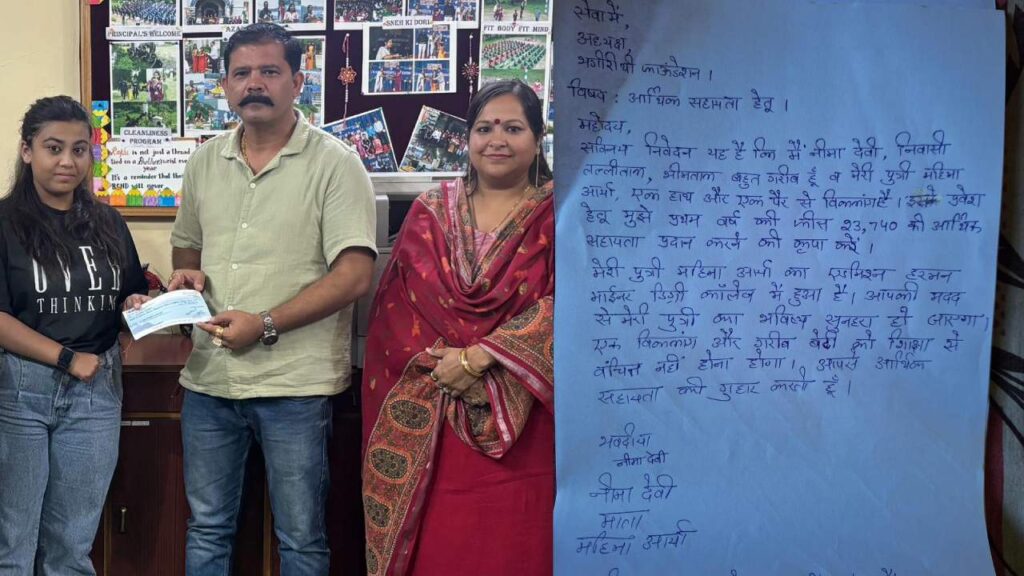 PRINCIPAL'S WELCOME
AZA
SNEH KI DORI
FIT BODY FIT MIND
CLEANLINESS
PROGRAM
Rakhi is not just a thread
tied on a Brother's wrist
year
It's a reminder that the
BOND will never
OVER
THINKING
सेवा में,
अध्यक्ष,
भागीरथी फाउंडेशन ।
विषय : आर्थिक सहायता हेतु ।
महोदय,
सविनय निवेदन यह है कि मैं नीमा देवी, निवासी
तल्लीताल, भीमताल बहुत गरीब हूँ व मेरी पुत्री महिमा
आर्या, एक हाथ और एक पैर से विकलांग है । इसके प्रवेश
हेतु मुझे प्रथम वर्ष की फीस २३,७४० की आर्थिक
सहायता प्रदान करने की कृपा करें ।
मेरी पुत्री महिमा आर्या का एडमिशन हरमन
माईनर डिग्री कॉलेज में हुआ है । आपकी मदद
से मेरी पुत्री का भविष्य सुनहरा हो जाएगा,
एक विकलांग और गरीब बेटी को शिक्षा से
वंचित नहीं होना होगा । आपसे आर्थिक
सहायता की गुहार करती हूँ ।
भवदीया
नीमा देवी
नीमा देवी
माता
महिमा आर्या